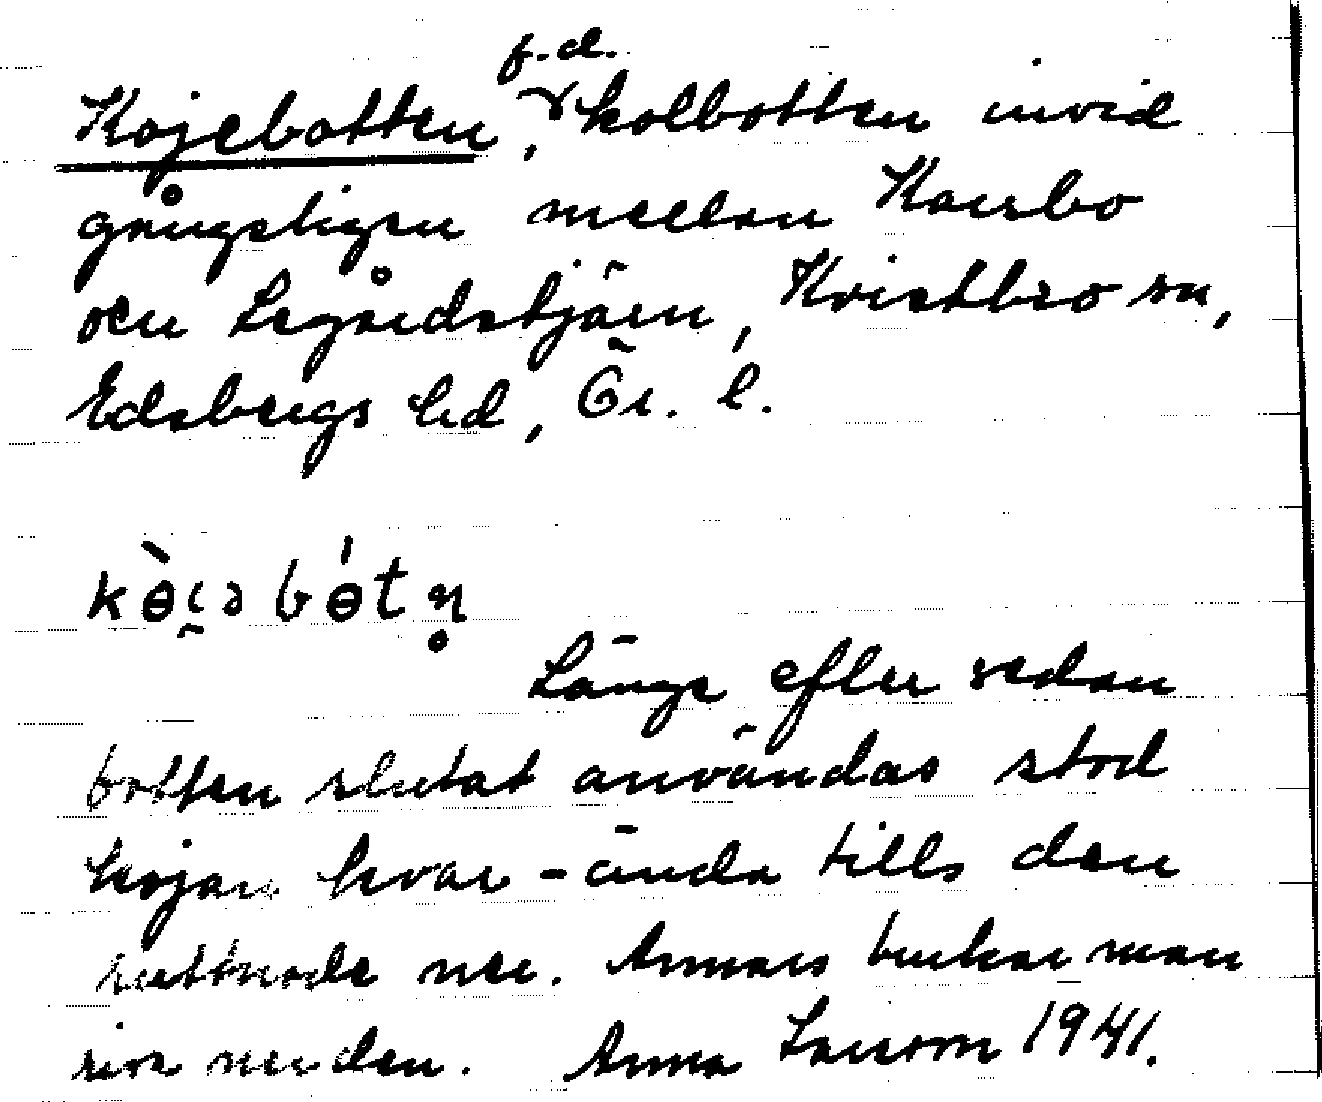 Kojebotten, f.d. kolbotten invid
gångstigen mellan Karsbo
och Legårdstjärn, Kvistbro sn,
Edsbergs hd, Ör. l.
kɵ̀i̯əbɵ́tn̥
Länge efter sedan
botten slutat användas stod
kojan kvar - ända tills den
ruttnade ner. Annars brukar man
riva ner den. Anna Larsson 1941.